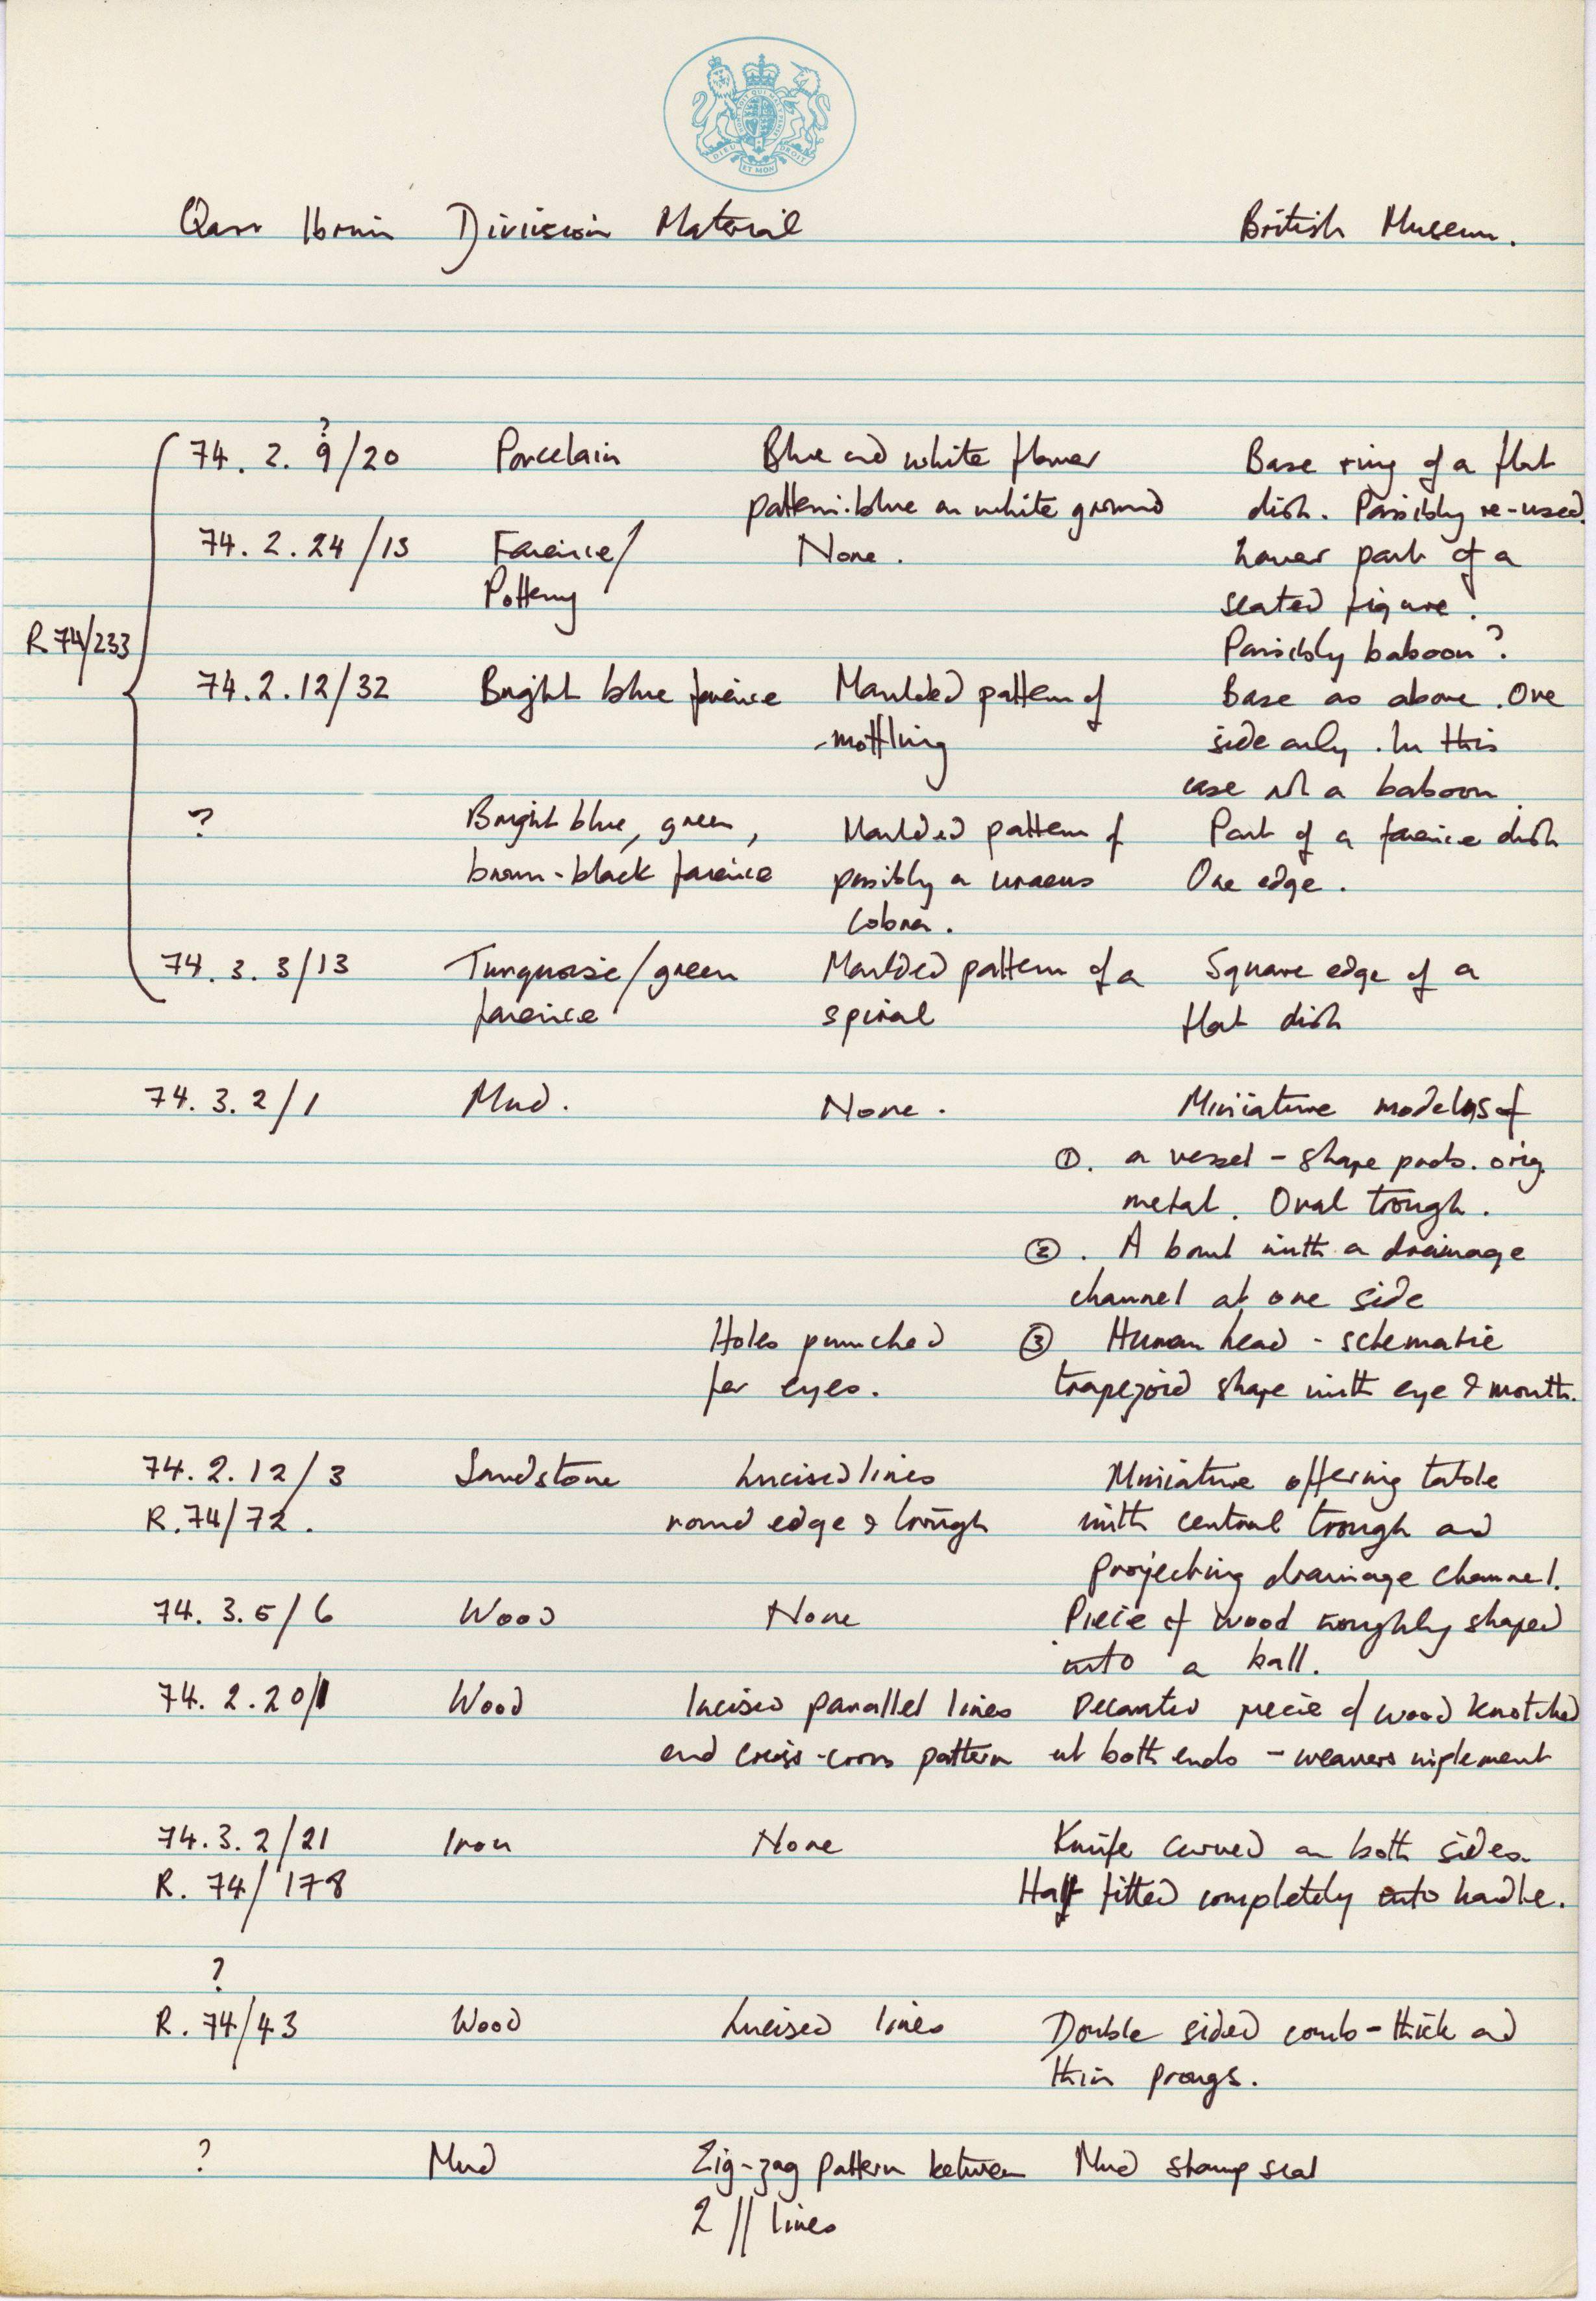 DIEU ET MON DROIT
Qasr Ibrim Division Material British Museum.
?
74. 2. 9/20 Porcelain Blue and white flower Base ring of a flat
pattern. blue on white ground dish. Possibly re-used.
74. 2. 24/13 Faience/ None. Lower part of a
Pottery seated figure.
R 74/233 Possibly baboon?
74.2.12/32 Bright blue faience Moulded pattern of Base as above. One
mottling side only. In this
case not a baboon.
? Bright blue, green, Moulded pattern of Part of a faience dish
brown-black faience possibly a uraeus One edge.
cobra.
74. 3. 3/13 Turquoise/green Moulded pattern of a Square edge of a
faience spiral flat dish
74. 3. 2/1 Mud. None. Miniature models of
①. a vessel - shape prob. orig.
metal. Oval trough.
②. A bowl with a drainage
channel at one side
Holes punched ③ Human head - schematic
for eyes. trapezoid shape with eye & mouth.
74. 2. 12/3 Sandstone Incised lines Miniature offering table
R.74/72. round edge & trough with central trough and
projecting drainage channel.
74. 3. 5/6 Wood None Piece of wood roughly shaped
into a ball.
74. 2. 20/1 Wood Incised parallel lines Decorated piece of wood knotched
and criss-cross pattern at both ends - weavers implement
74.3. 2/21 Iron None Knife curved on both sides.
R. 74/178 Haft fitted completely onto handle.
?
R. 74/43 Wood Incised lines Double sided comb - thick and
thin prongs.
? Mud Zig-zag pattern between Mud stamp seal
2 // lines